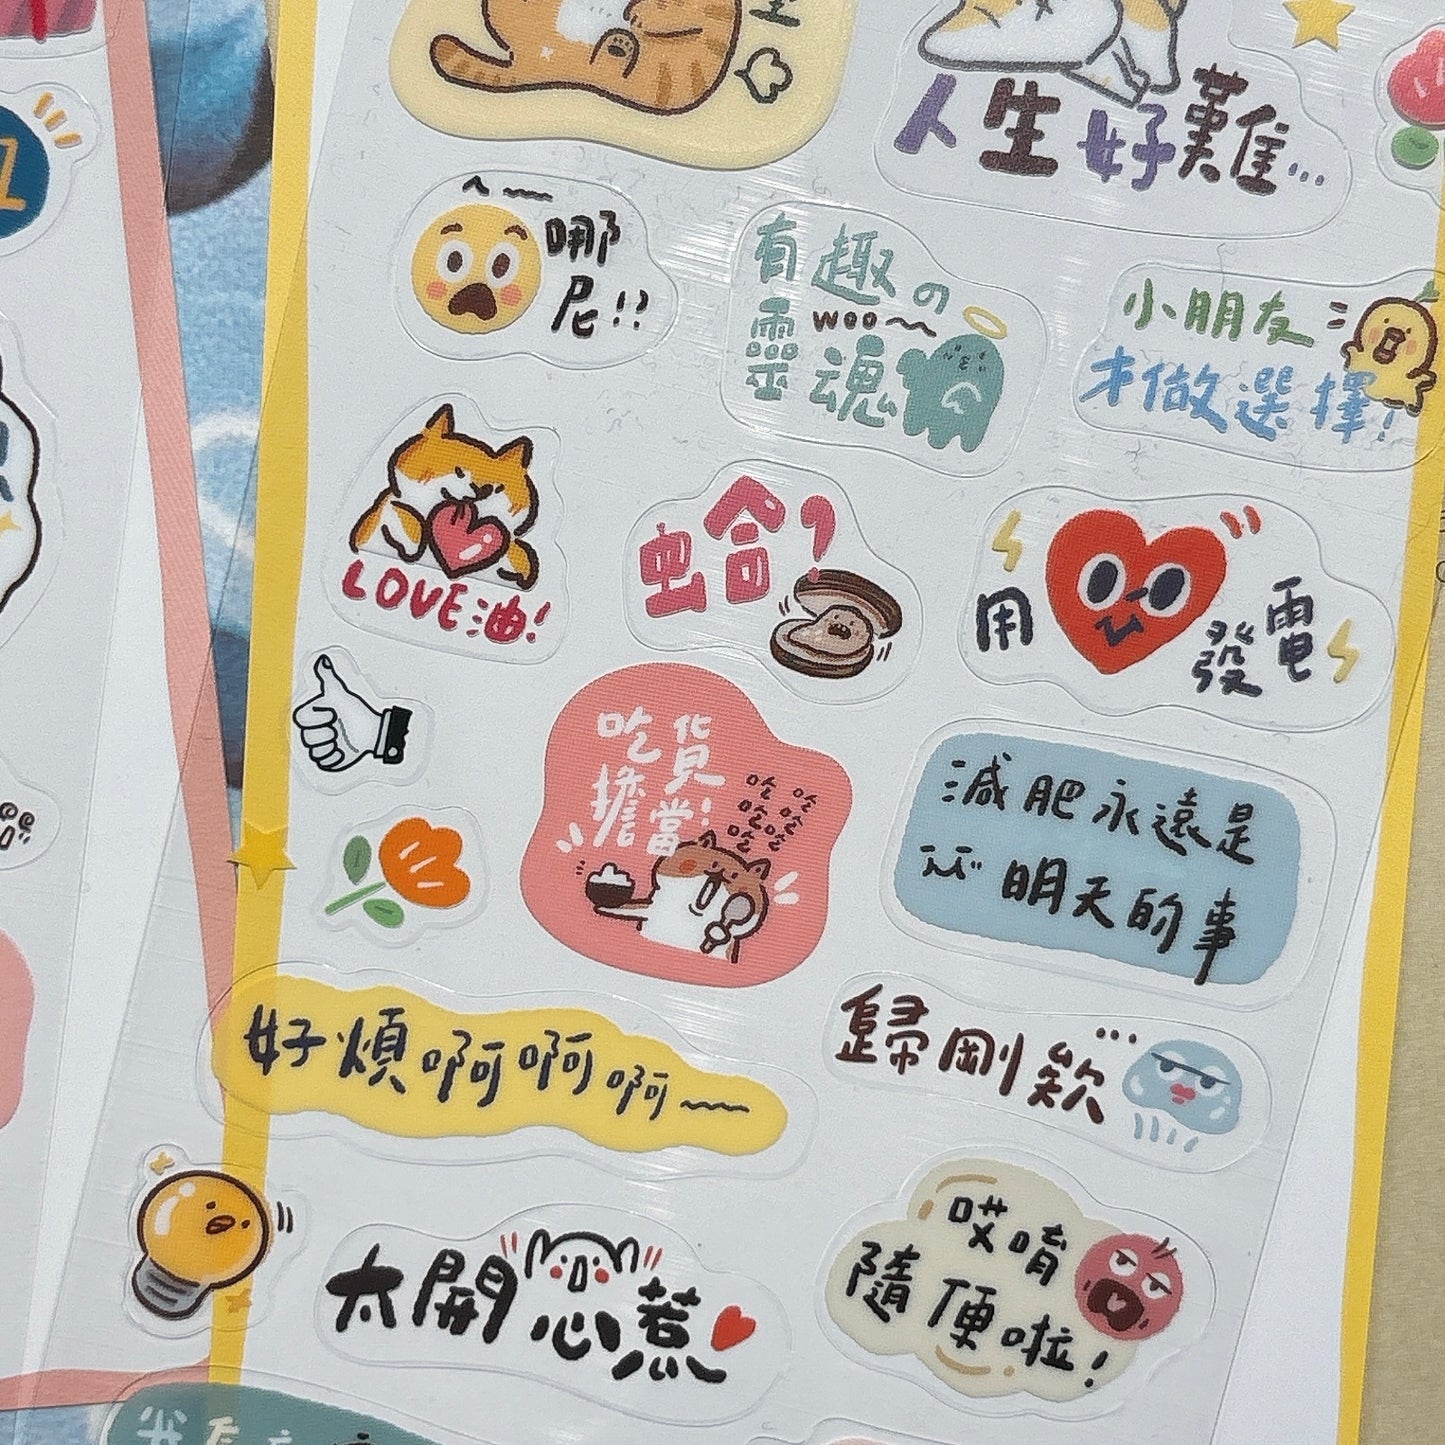 人生好難...
哪
尼!!
有趣の
woo~
靈魂
小朋友
才做選擇!
LOVE油!
蛤?
用
發電
吃貨
擔當!
哈哈
哈哈
哈哈
減肥永遠是
明天的事
好煩啊啊啊~
歸剛欸
太開心惹
哎唷
隨便啦!